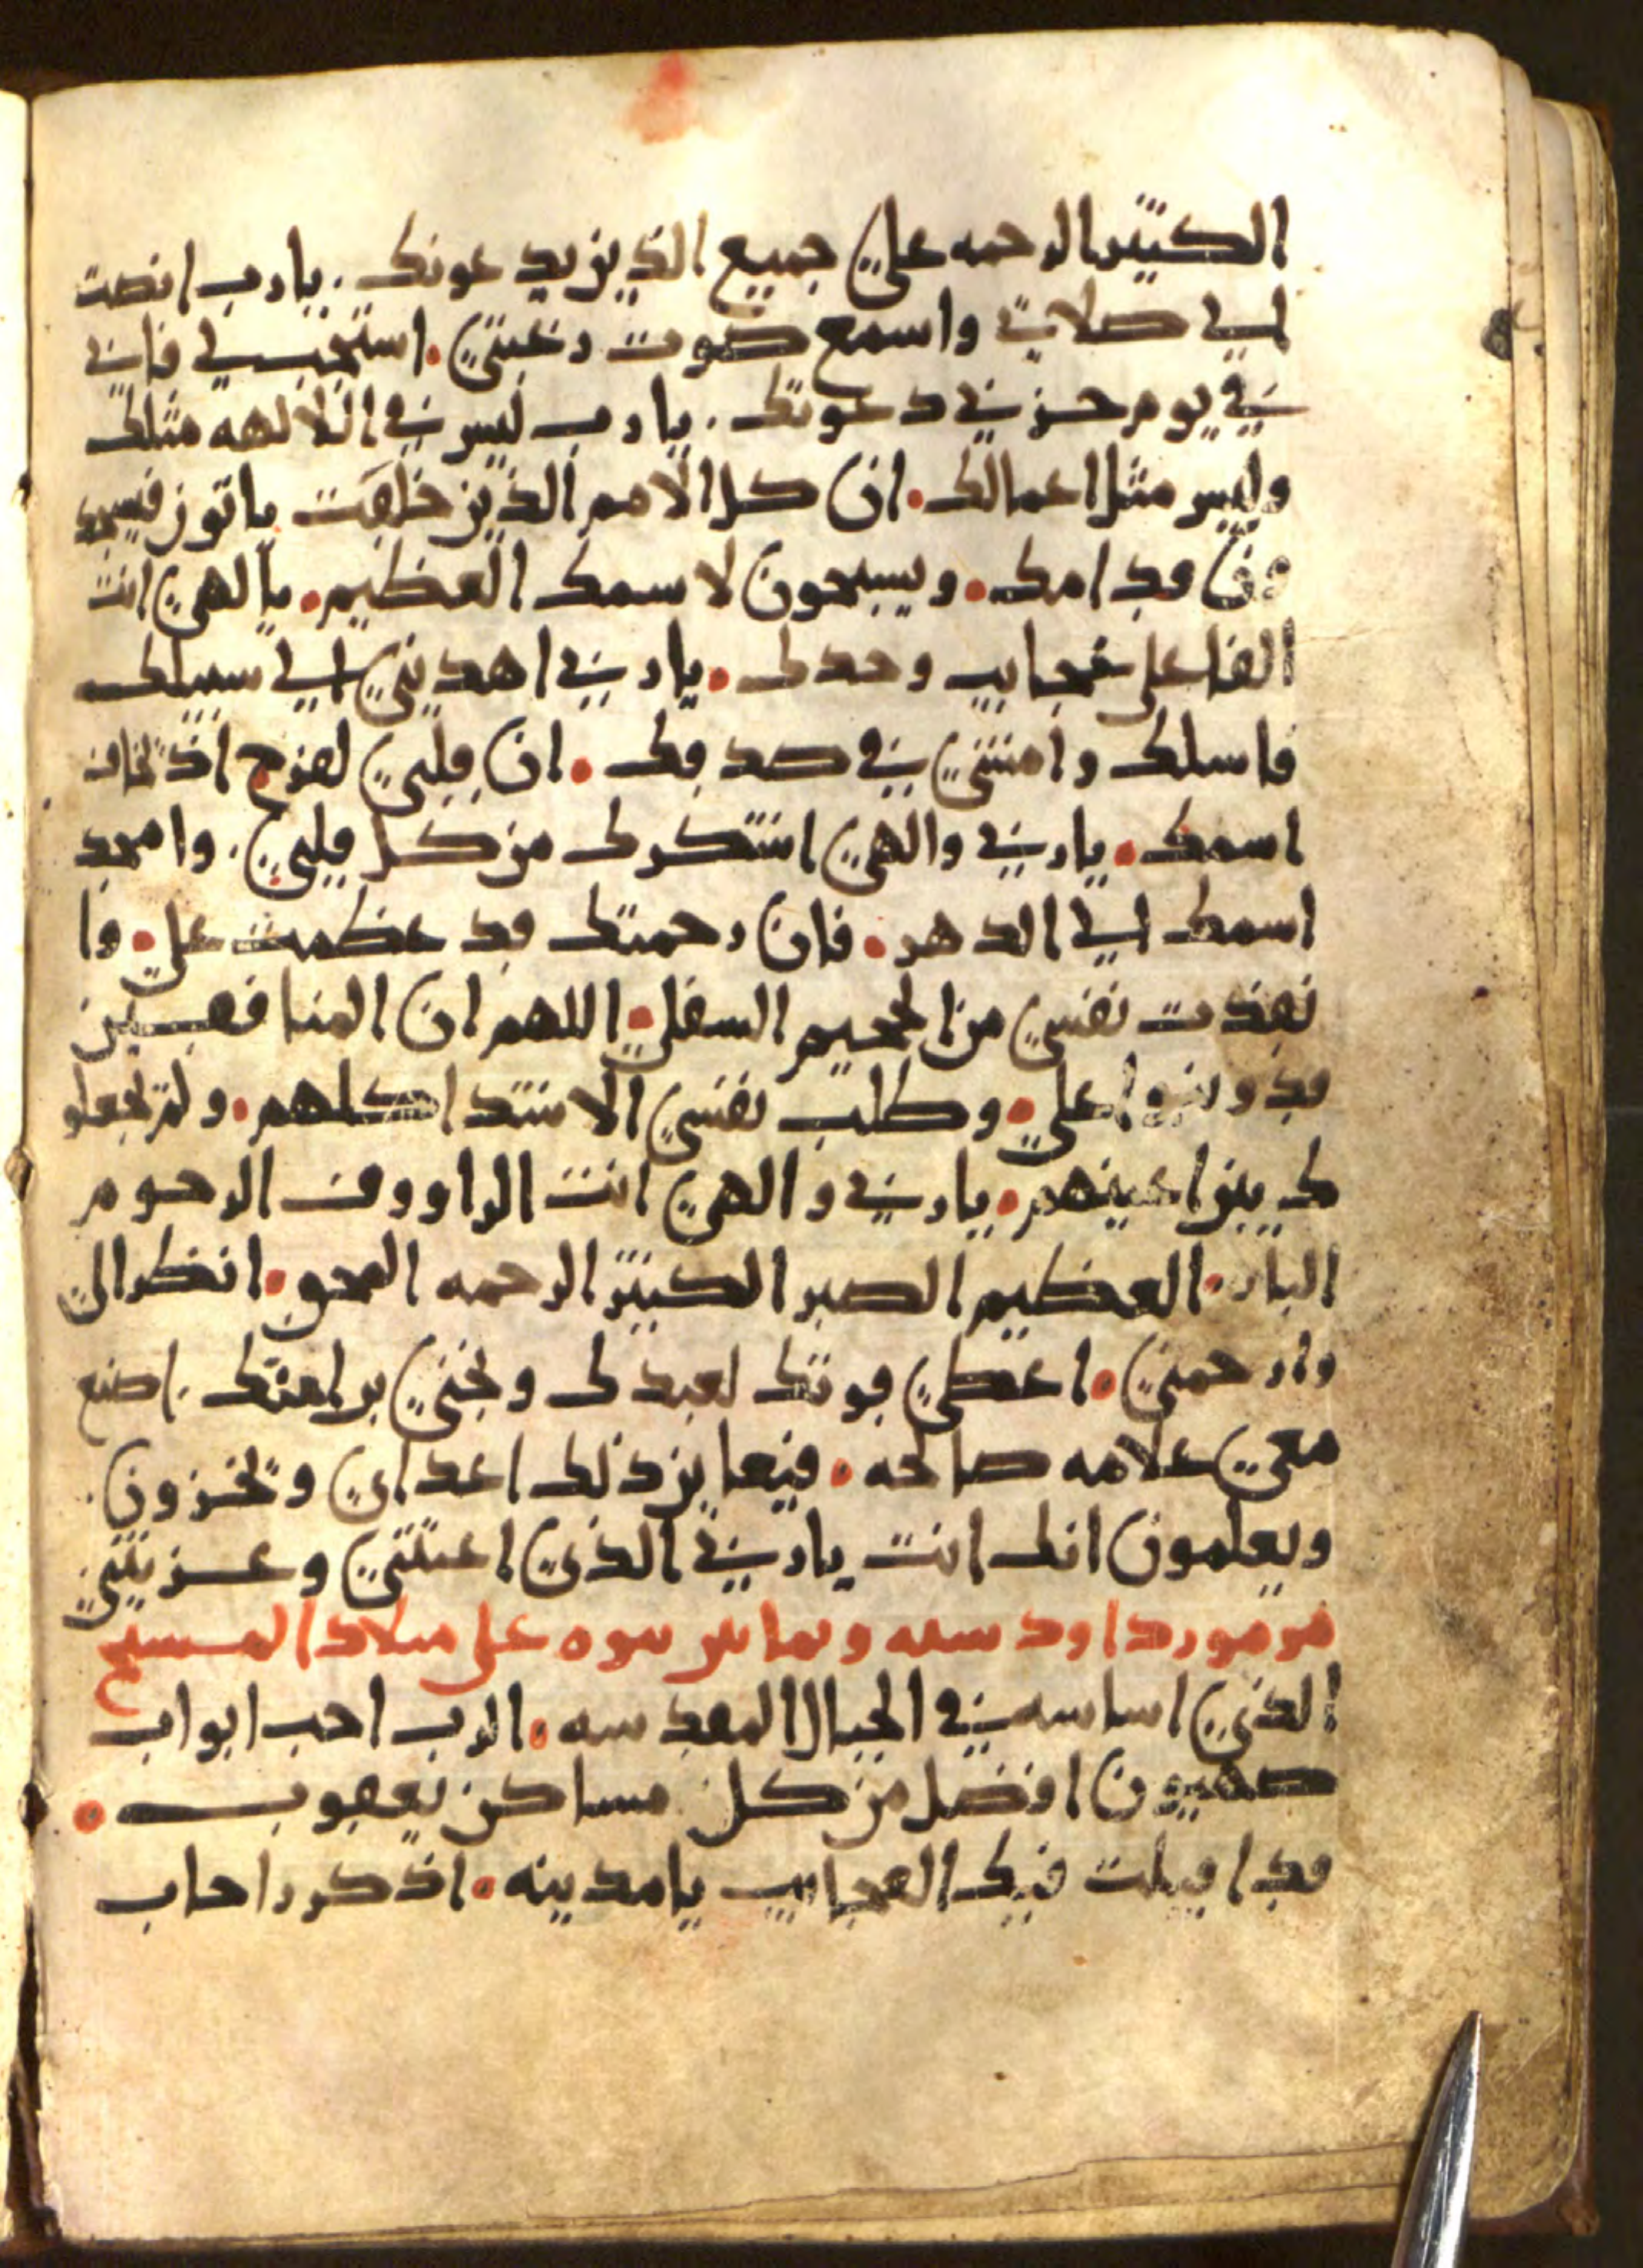 الكثير الرحمه على جميع الذين يدعونك. يا رب انصت
الي صلاتي واسمع صوت رغبتي. استجب لي فاني
في يوم حزني دعوتك. يا رب ليس في الالهه مثلك
وليس مثل اعمالك. ان كل الامم الذين خلقت ياتون فيسجد
ون قدامك. ويسبحون لاسمك العظيم. يا الهي انت
الفاعل عجايب وحدك. يا ربي اهديني الي سبيلك
فاسلك وامشي في صدقك. ان قلبي لفرح اذ تخاف
اسمك. يا ربي والهي اشكرك من كل قلبي. وامجد
اسمك الي الدهر. فان رحمتك قد عظمت علي. وا
نقذت نفسي من الجحيم السفلي. اللهم ان المنافقين
قد وثبوا علي. وطلب نفسي الاشدا كلهم. ولم يجعلو
ك بين اعينهم. يا ربي والهي انت الراووف الرحوم
البار. العظيم الصبر الكثير الرحمه المحق. انظر الي
وارحمني. اعطي قوتك لعبدك ونجني برافتك. اصنع
معي علامه صالحه. فيعاين ذلك اعداي ويخزون.
ويعلمون انك انت يا ربي الذي اعنتني وعزيتني
مزمور داود سته وثمانين نبوه على ميلاد المسيح
الذي اساسه في الجبال المقدسه. الرب احب ابواب
صهيون افضل من كل مساكن يعقوب.
قد اقيلت فيك العجايب يا مدينه. اذكر راحاب